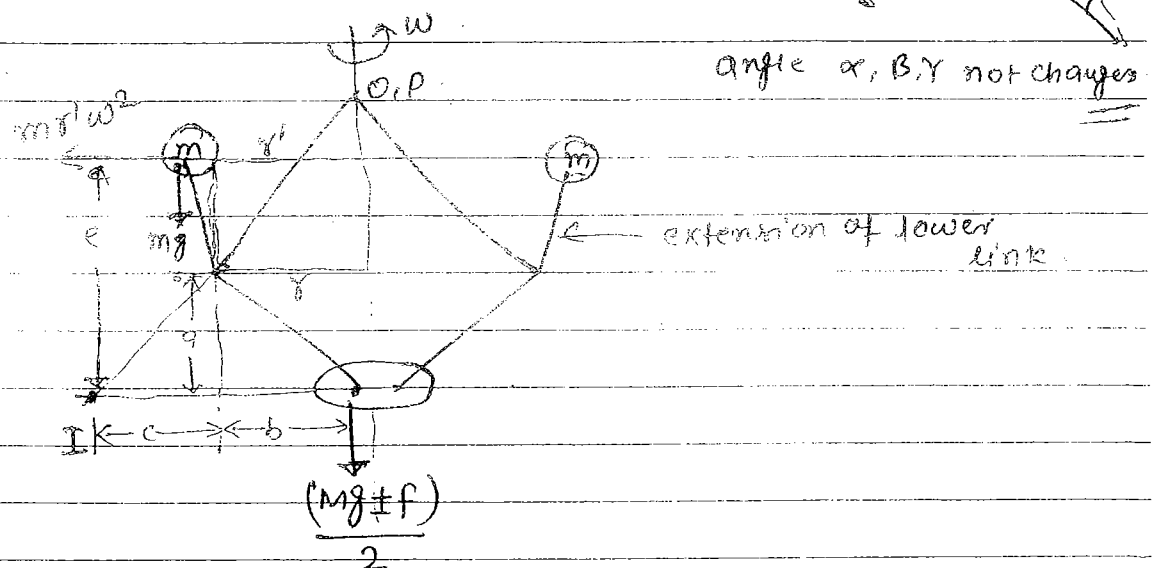 ω
angle α, β, γ not changes
O, P
mr'ω²
m
r'
m
e
mg
extension of lower
link
r
a
I
c
b
(Mg ± f)
2